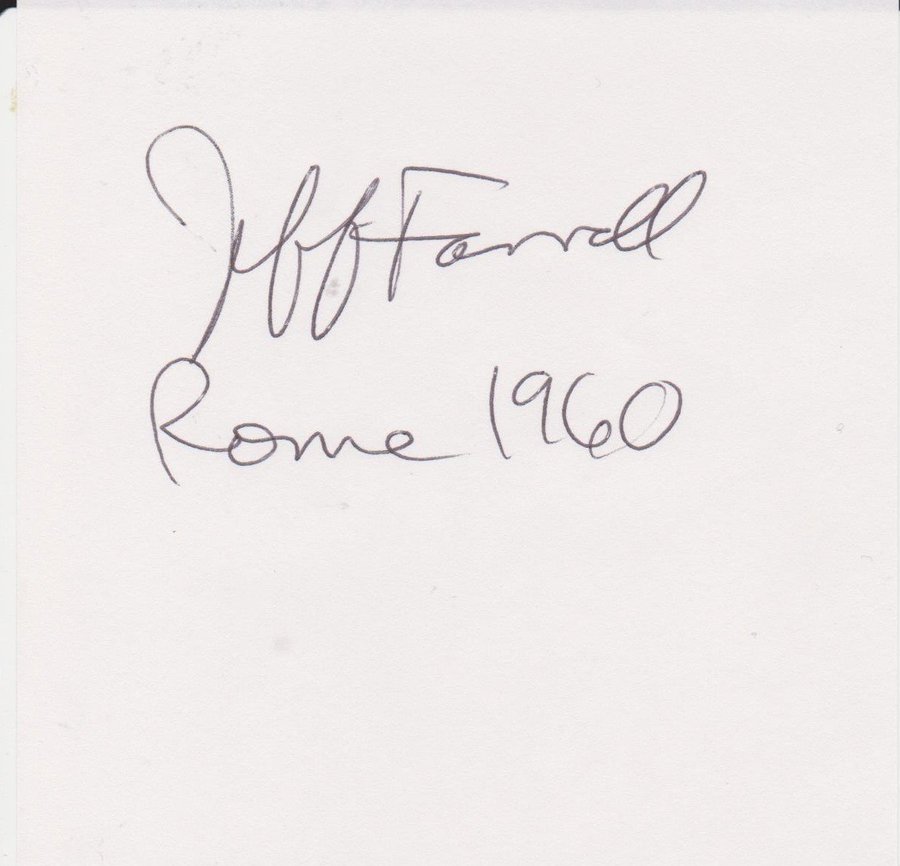 Jeff Farrell
Rome 1960